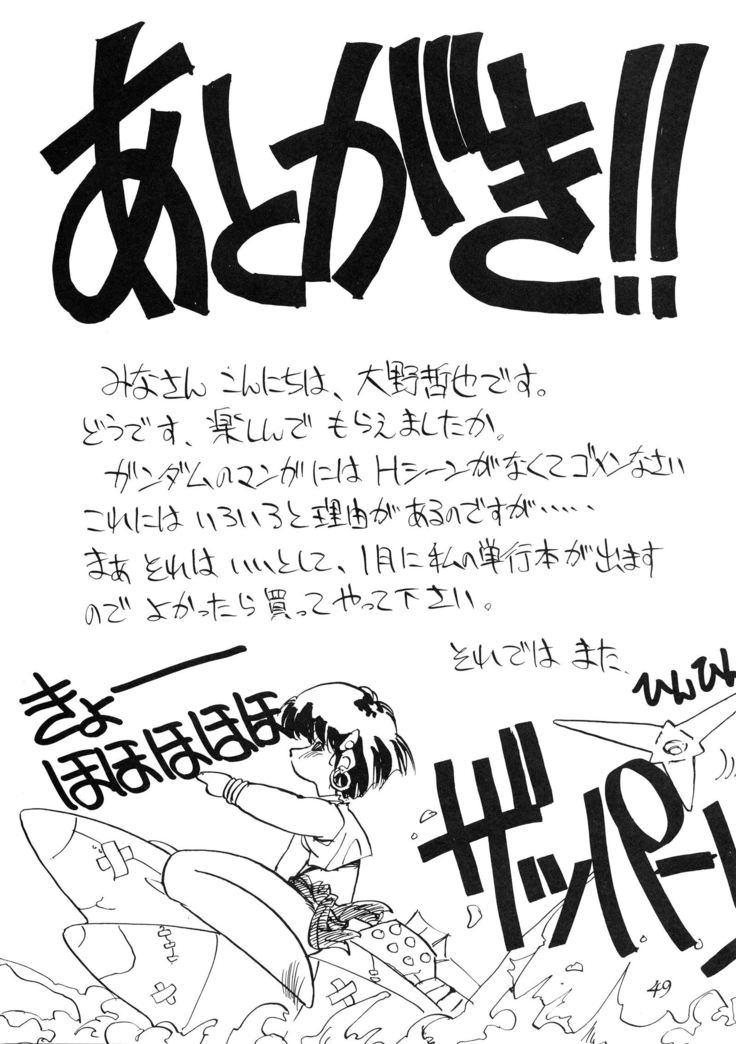 あとがき!!
みなさん こんにちは、大野哲也です。
どうです、楽しんで もらえましたか。
ガンダムのマンガには Hシーンがなくてゴメンなさい
これには いろいろと理由があるのですが・・・・・
まぁ それは いいとして、1月に私の単行本が出ます
ので よかったら買ってやって下さい。
それでは また、
きょー
ほほほほほ
ひんひん
ザッパーン
49